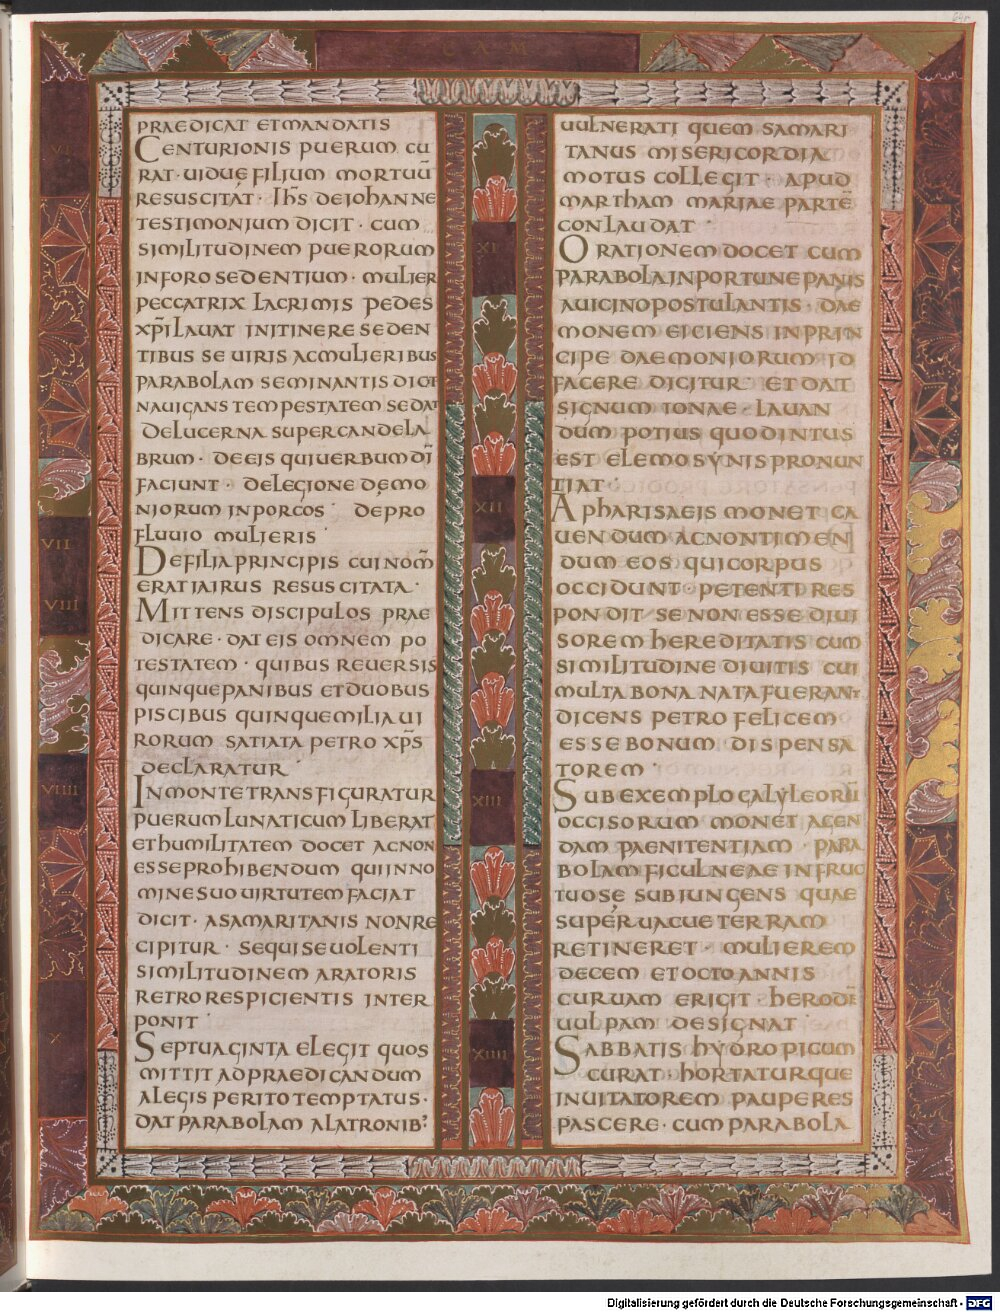 64r
CAM
PRAEDICAT ET MANDATIS
CENTURIONIS PUERUM CU
RAT · UIDUE FILIUM MORTUŪ
RESUSCITAT · IHS̄ DE IOHANNE
TESTIMONIUM DICIT · CUM
SIMILITUDINEM PUERORUM
IN FORO SEDENTIUM · MULIER
PECCATRIX LACRIMIS PEDES
XP̄I LAUAT IN ITINERE SEDEN
TIBUS SE UIRIS AC MULIERIBUS
PARABOLAM SEMINANTIS DICIT
NAUIGANS TEMPESTATEM SEDAT
DE LUCERNA SUPER CANDELA
BRUM · DE EIS QUI UERBUM DĪ
FACIUNT · DE LEGIONE DEMO
NIORUM IN PORCOS · DE PRO
FLUUIO MULIERIS
DE FILIA PRINCIPIS CUI NOM̄
ERAT IAIRUS RESUSCITATA ·
MITTENS DISCIPULOS PRAE
DICARE · DAT EIS OMNEM PO
TESTATEM · QUIBUS REUERSIS
QUINQUE PANIBUS ET DUOBUS
PISCIBUS QUINQUE MILIA UI
RORUM SATIATA PETRO XP̄S
DECLARATUR
IN MONTE TRANSFIGURATUR
PUERUM LUNATICUM LIBERAT
ET HUMILITATEM DOCET AC NON
ESSE PROHIBENDUM QUI IN NO
MINE SUO UIRTUTEM FACIAT
DICIT · A SAMARITANIS NON RE
CIPITUR · SEQUI SE UOLENTI
SIMILITUDINEM ARATORIS
RETRO RESPICIENTIS INTER
PONIT
SEPTUAGINTA ELEGIT QUOS
MITTIT AD PRAEDICANDUM
A LEGIS PERITO TEMPTATUS ·
DAT PARABOLAM A LATRONIB;
UULNERATI QUEM SAMARI
TANUS MISERICORDIA
MOTUS COLLEGIT · APUD
MARTHAM MARIAE PARTĒ
CONLAUDAT ·
ORATIONEM DOCET CUM
PARABOLA INPORTUNE PANIS
A UICINO POSTULANTIS · DAE
MONEM EICIENS IN PRIN
CIPE DAEMONIORUM ID
FACERE DICITUR · ET DAT
SIGNUM IONAE · LAUAN
DUM POTIUS QUOD INTUS
EST ELEMOSYNIS PRONUN
TIAT ·
A PHARISAEIS MONET CA
UENDUM AC NON TIMEN
DUM EOS QUI CORPUS
OCCIDUNT · PETENTI RES
PONDIT SE NON ESSE DIUI
SOREM HEREDITATIS CUM
SIMILITUDINE DIUITIS CUI
MULTA BONA NATA FUERANT
DICENS PETRO FELICEM
ESSE BONUM DISPENSA
TOREM ·
SUB EXEMPLO GALYLEORŪ
OCCISORUM MONET AGEN
DAM PAENITENTIAM · PARA
BOLAM FICULNEAE INFRUC
TUOSE SUBIUNGENS QUAE
SUPERUACUE TERRAM
RETINERET · MULIEREM
DECEM ET OCTO ANNIS
CURUAM ERIGIT · HERODĒ
UULPAM DESIGNAT ·
SABBATIS HYDROPICUM
CURAT · HORTATURQUE
INUITATOREM PAUPERES
PASCERE · CUM PARABOLA
VI
VII
VIII
VIIII
X
XI
XII
XIII
XIIII
Digitalisierung gefördert durch die Deutsche Forschungsgemeinschaft - DFG